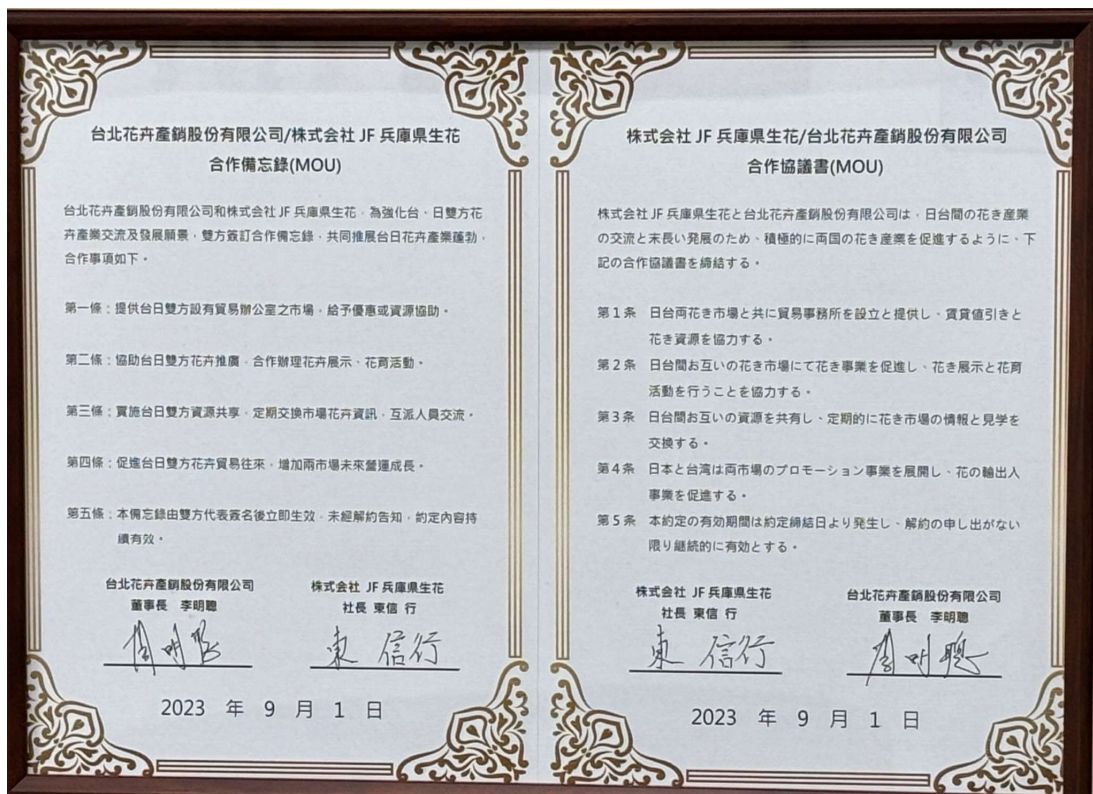 台北花卉產銷股份有限公司/株式会社 JF 兵庫県生花
合作備忘錄(MOU)
台北花卉產銷股份有限公司和株式会社 JF 兵庫県生花，為強化台、日雙方花
卉產業交流及發展願景，雙方簽訂合作備忘錄，共同推展台日花卉產業蓬勃，
合作事項如下。
第一條：提供台日雙方設有貿易辦公室之市場，給予優惠或資源協助。
第二條：協助台日雙方花卉推廣，合作辦理花卉展示、花育活動。
第三條：實施台日雙方資源共享，定期交換市場花卉資訊，互派人員交流。
第四條：促進台日雙方花卉貿易往來，增加兩市場未來營運成長。
第五條：本備忘錄由雙方代表簽名後立即生效，未經解約告知，約定內容持
續有效。
台北花卉產銷股份有限公司 株式会社 JF 兵庫県生花
董事長 李明聰 社長 東信 行
李明聰 東 信行
2023 年 9 月 1 日
株式会社 JF 兵庫県生花/台北花卉產銷股份有限公司
合作協議書(MOU)
株式会社 JF 兵庫県生花と台北花卉產銷股份有限公司は、日台間の花き産業
の交流と末長い発展のため、積極的に両国の花き産業を促進するように、下
記の合作協議書を締結する。
第1条 日台両花き市場と共に貿易事務所を設立と提供し、賃貸値引きと
花き資源を協力する。
第2条 日台間お互いの花き市場にて花き事業を促進し、花き展示と花育
活動を行うことを協力する。
第3条 日台間お互いの資源を共有し、定期的に花き市場の情報と見学を
交換する。
第4条 日本と台湾は両市場のプロモーション事業を展開し、花の輸出人
事業を促進する。
第5条 本約定の有効期間は約定締結日より発生し、解約の申し出がない
限り継続的に有効とする。
株式会社 JF 兵庫県生花 台北花卉產銷股份有限公司
社長 東信 行 董事長 李明聰
東 信行 李明聰
2023 年 9 月 1 日